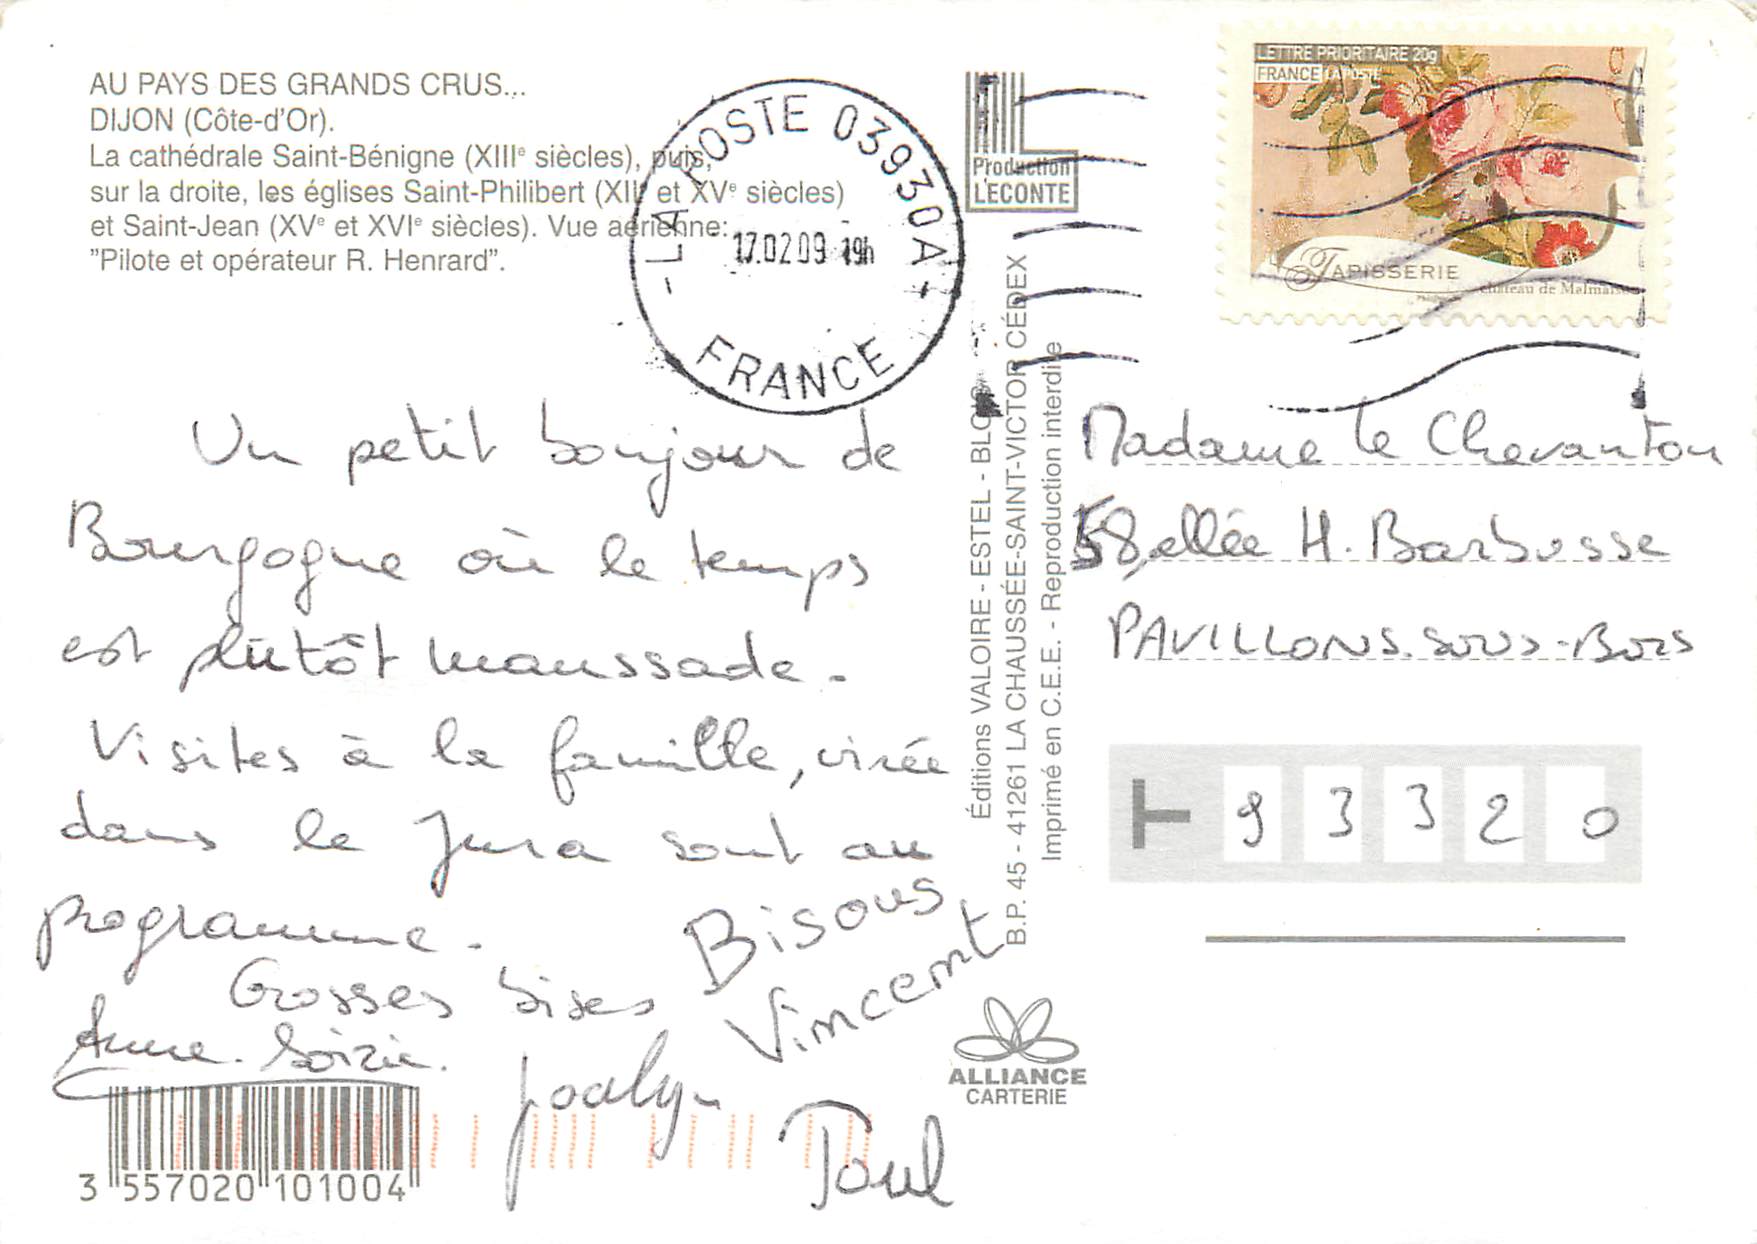 AU PAYS DES GRANDS CRUS...
DIJON (Côte-d'Or).
La cathédrale Saint-Bénigne (XIIIᵉ siècles), puis,
sur la droite, les églises Saint-Philibert (XIIᵉ et XVᵉ siècles)
et Saint-Jean (XVᵉ et XVIᵉ siècles). Vue aérienne:
"Pilote et opérateur R. Henrard".
- LA POSTE 03930A -
17.02 09 19h
FRANCE
Production
LECONTE
LETTRE PRIORITAIRE 20g
FRANCE LA POSTE
TAPISSERIE
château de Malmaison
Un petit bonjour de
Bourgogne où le temps
est plutôt maussade.
Visites à la famille, virée
dans le Jura sont au
programme.
Grosses bises
Anne-Soizic.
Bisous
Vincent
Jocelyn
Paul
Éditions VALOIRE - ESTEL - BLOIS
B.P. 45 - 41261 LA CHAUSSÉE-SAINT-VICTOR CÉDEX
Imprimé en C.E.E. - Reproduction interdite
Madame Le Chevanton
58, allée H. Barbusse
PAVILLONS-SOUS-BOIS
93320
ALLIANCE
CARTERIE
3 557020 101004